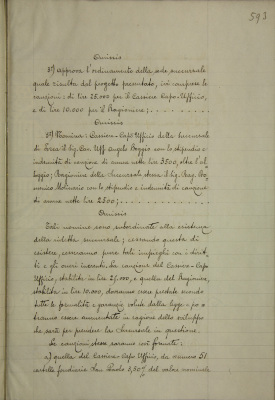 593
Omissis
3º) approva l'ordinamento della sede succursale
quale risulta dal progetto presentato, ivi comprese le
cauzioni: di lire 25.000 per il Cassiere Capo-Ufficio,
e di lire 10.000 per il Ragioniere;
Omissis
5º) Nomina: Cassiere-Capo Ufficio della Succursale
di il Sig. Cav. Uff. Angelo Boggio con lo stipendio e
indennità di cauzione di annue nette lire 3500, oltre l'al
loggio; Ragioniere della Succursale stessa il Sig. Rag. Do
menico Molinario con lo stipendio e indennità di cauzione
di annue nette lire 2500;
Omissis
Tali nomine sono subordinate alla esistenza
della ridetta succursale; cessando questa di
esistere, cesseranno pure tali impieghi con i dirit
ti e gli oneri inerenti. La cauzione del Cassiere-Capo
Ufficio, stabilita in lire 25,000, e quella del Ragioniere,
stabilita in lire 10.000, dovranno essere prestate secondo
tutte le formalità e garanzie volute dalla legge e po=
tranno essere aumentate in ragione dello sviluppo
che sarà per prendere la Succursale in questione.
Le cauzioni stesse saranno così formate:
a) quella del Cassiere-Capo Ufficio, da numero 51
cartelle fondiarie San Paolo 3,50% del valore nominale